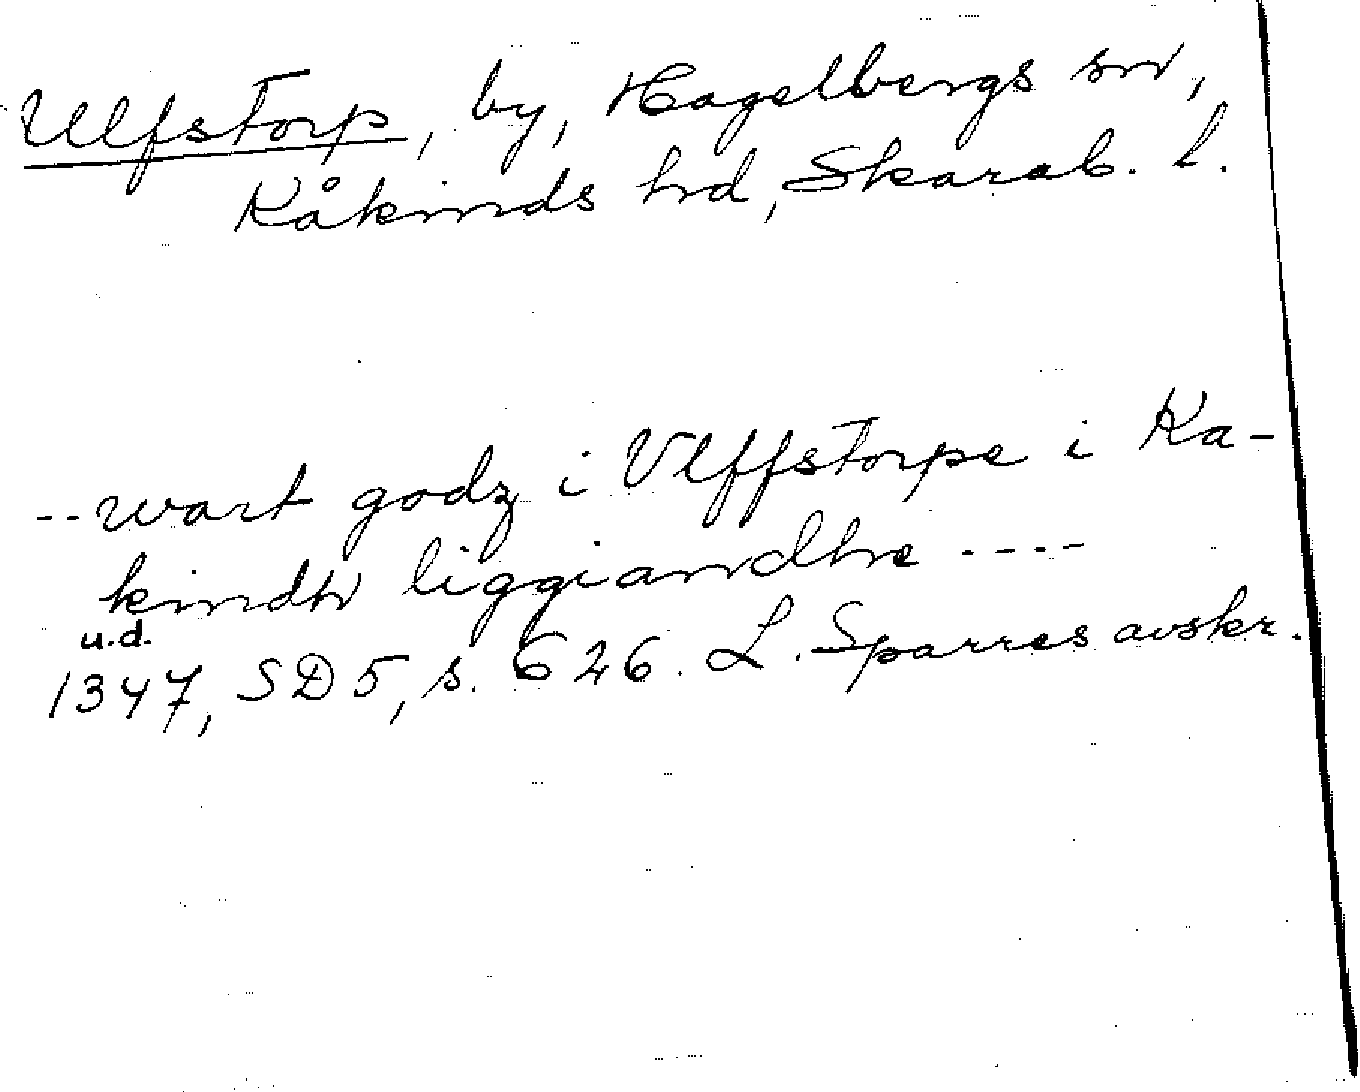 Ulfstorp, by, Hagelbergs sn,
Kåkinds hd, Skarab. l.
-- wart godz i Vlffstorpe i Ka-
kindh liggiandhe ----
u.d.
1347, SD 5, s. 626. L. Sparres avskr.